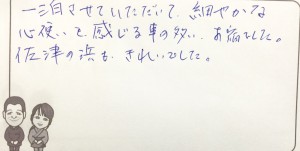 一泊させていただいて、細やかな
心使いを感じる事の多い、お宿でした。
佐津の浜も、きれいでした。